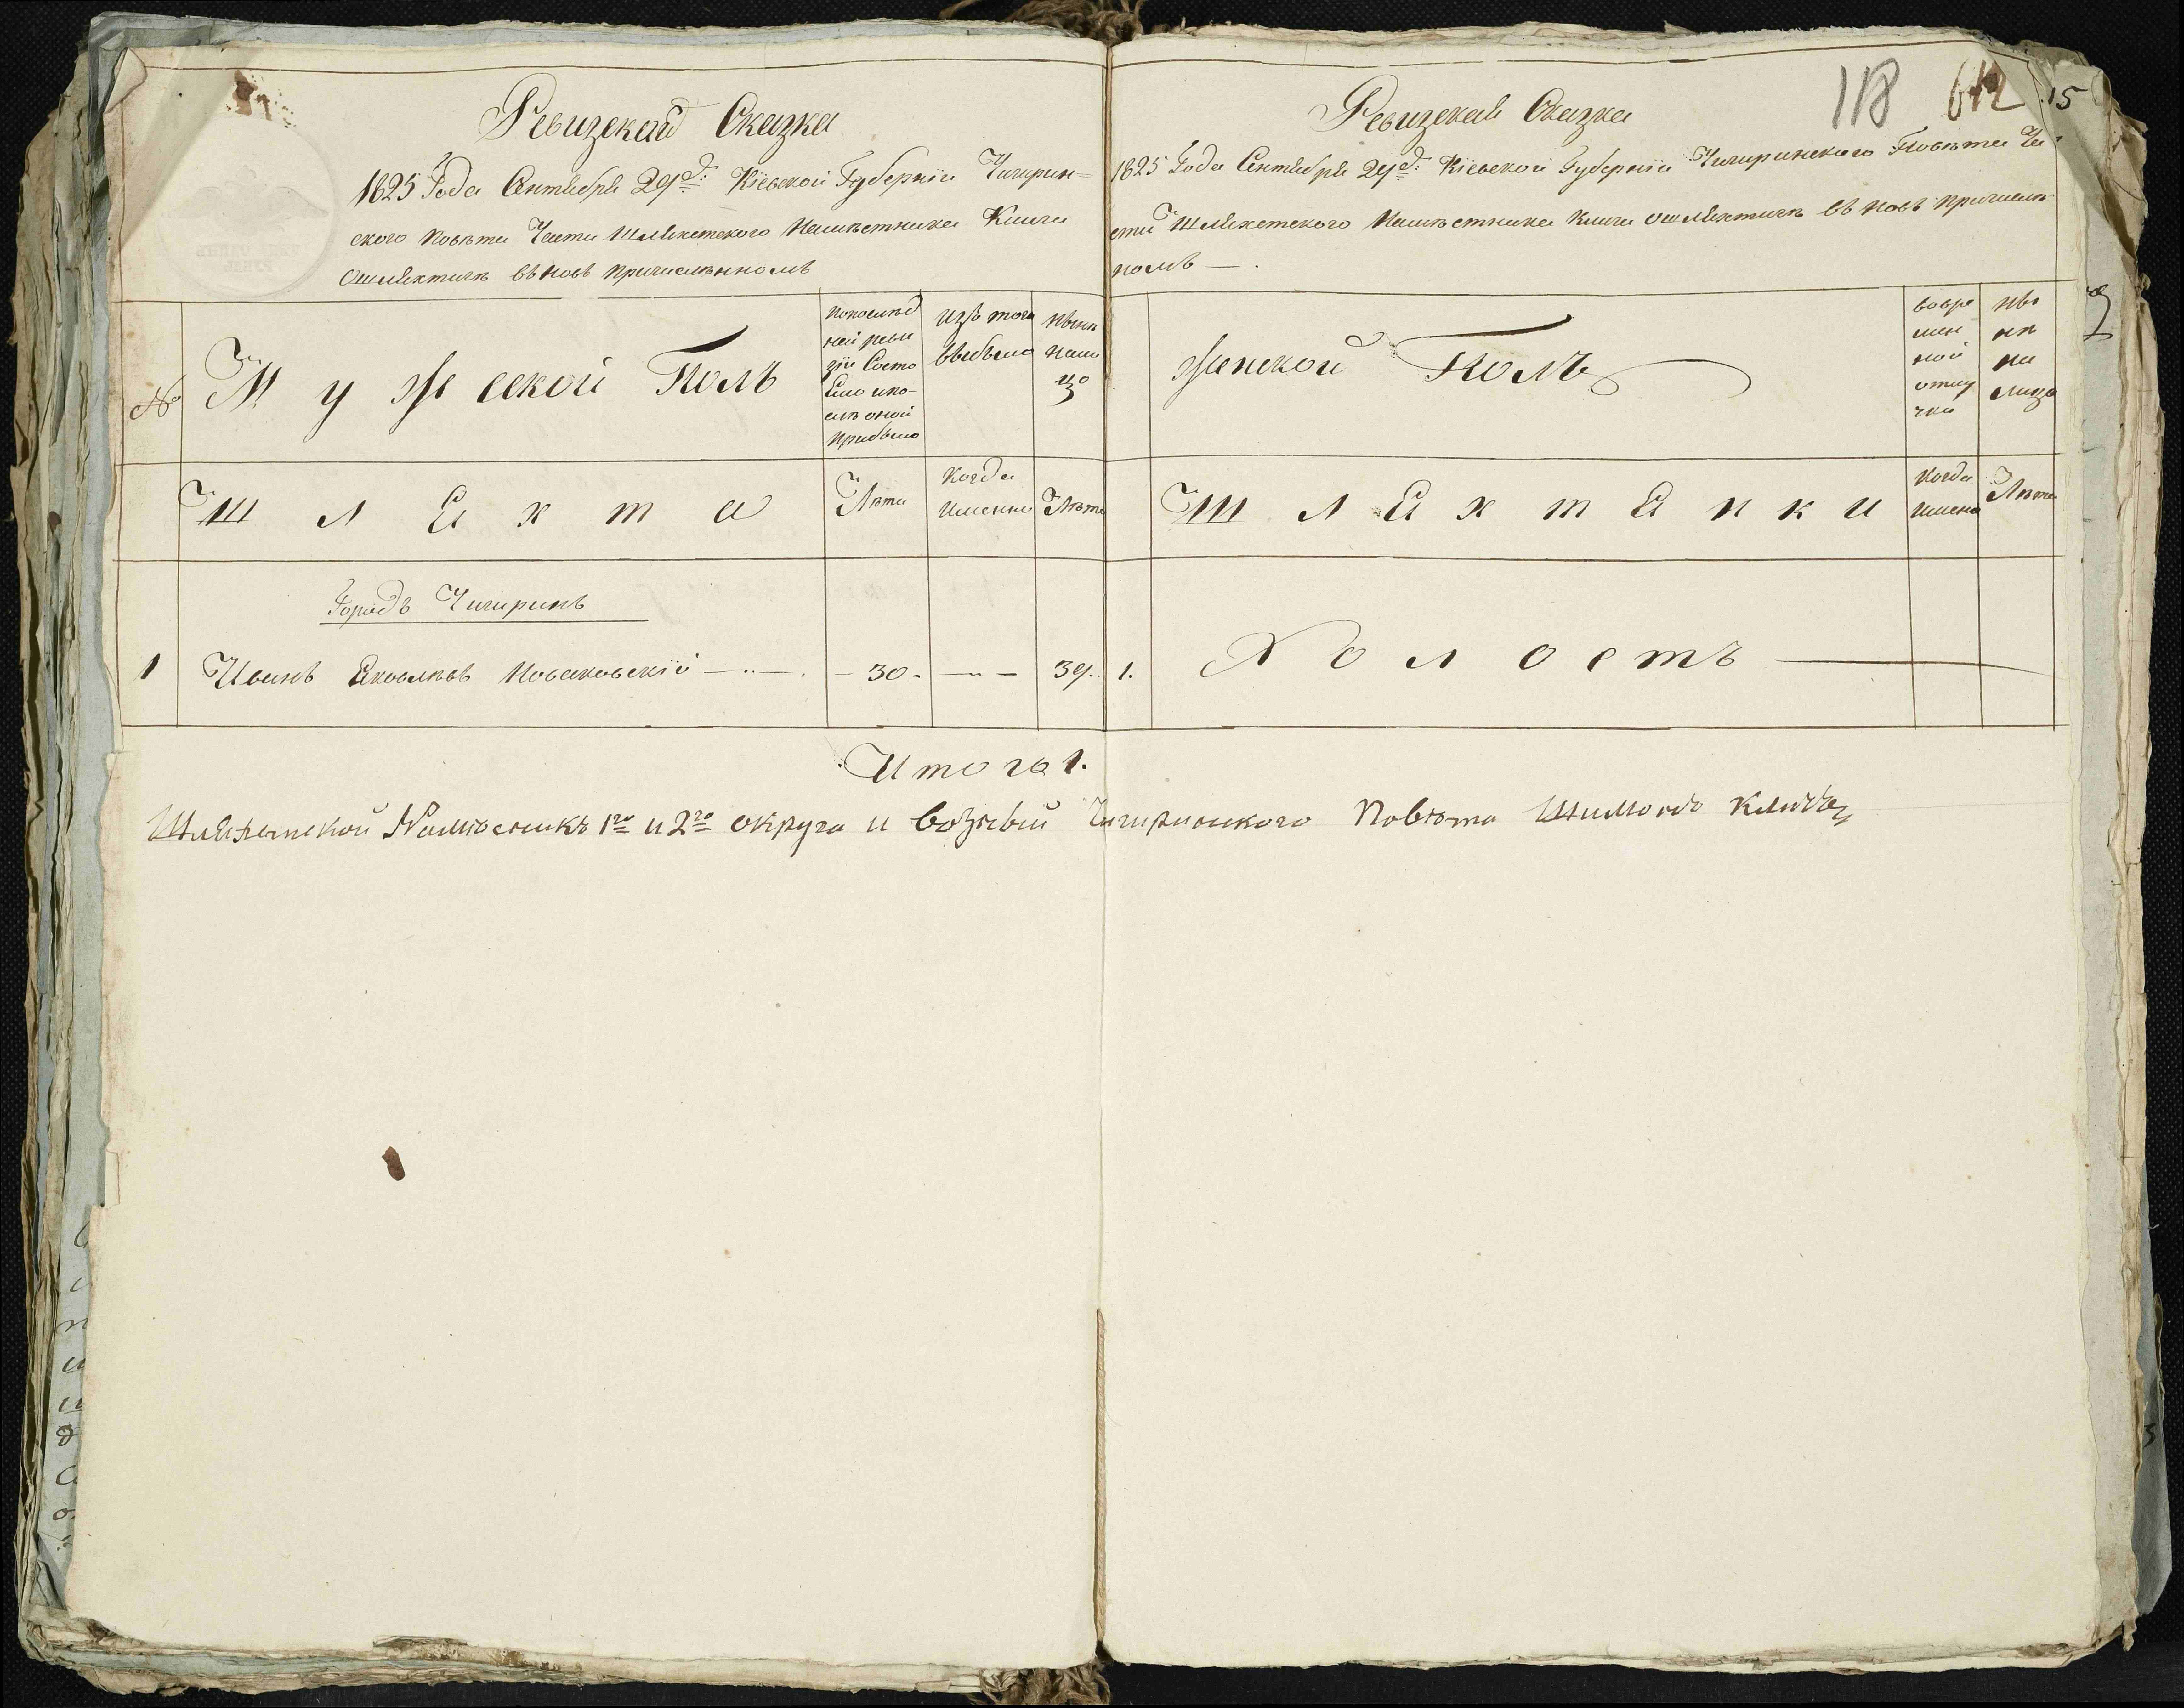 Ревизская Сказка
1825 Года Сентября 29д: Кіевской Губерніи Чигирин=
ского Повѣта Части Шляхетского Намѣстника Клича
О шляхтичѣ въ новъ причисленномъ
№
Мужеской Полъ
По послѣд
ней реви
зіи Состо
яло и по-
слѣ оной
прибыло
Изъ того
выбыло
Нынѣ
на ли
цо
Шляхта
Лѣта
Когда
Именно
Лѣта
Городъ Чигиринъ
1 Иванъ Яковлевъ Новаковскій — 30 — 39.
Ревизская Сказка
118 612 15
1825 Года Сентября 29д: Кіевской Губерніи Чигиринского Повѣта Ча
сти Шляхетского Намѣстника Клича О шляхтичѣ въ новъ причислен
номъ —.
Женской Полъ
Во вре
мен
ной
отлу
чки
Ны
нѣ
на
лицо
Шляхтянки
Когда
Имено
Лѣта
1. Холостъ
Итого 1.
Шляхетской Намѣсникъ 1го и 2го округа и возный Чигиринского Повѣта Шимонъ Кличъ